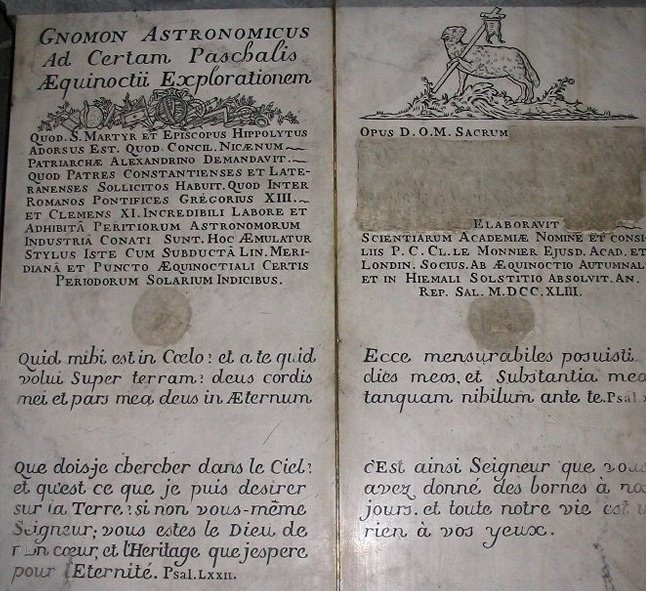 GNOMON ASTRONOMICUS
Ad Certam Paschalis
Æquinoctii Explorationem
QUOD. S. MARTYR ET EPISCOPUS HIPPOLYTUS
ADORSUS EST. QUOD. CONCIL. NICÆNUM
PATRIARCHÆ ALEXANDRINO DEMANDAVIT.
QUOD PATRES CONSTANTIENSES ET LATE-
RANENSES SOLLICITOS HABUIT. QUOD INTER
ROMANOS PONTIFICES GREGORIUS XIII.
ET CLEMENS XI. INCREDIBILI LABORE ET
ADHIBITÂ PERITIORUM ASTRONOMORUM
INDUSTRIÂ CONATI SUNT. HOC ÆMULATUR
STYLUS ISTE CUM SUBDUCTÂ LIN. MERI-
DIANÂ ET PUNCTO ÆQUINOCTIALI CERTIS
PERIODORUM SOLARIUM INDICIBUS.
Quid mihi est in Cœlo? et a te quid
volui Super terram? deus cordis
mei et pars mea deus in Æternum
Que dois-je chercher dans le Ciel?
et qu'est ce que je puis desirer
sur la Terre? si non vous-même
Seigneur; vous estes le Dieu de
mon cœur, et l'Heritage que j'espere
pour l'Eternité. PSAL. LXXII.
OPUS D.O.M. SACRUM
ELABORAVIT
SCIENTIARUM ACADEMIÆ NOMINE ET CONSI-
LIIS P. C. CL. LE MONNIER EJUSD. ACAD. ET
LONDIN. SOCIUS. AB ÆQUINOCTIO AUTUMNALI
ET IN HIEMALI SOLSTITIO ABSOLVIT. AN.
REP. SAL. M.DCC.XLIII.
Ecce mensurabiles posuisti
dies meos, et Substantia mea
tanquam nihilum ante te. Psal.
c'Est ainsi Seigneur que vous
avez donné des bornes à nos
jours. et toute notre vie est
rien à vos yeux.